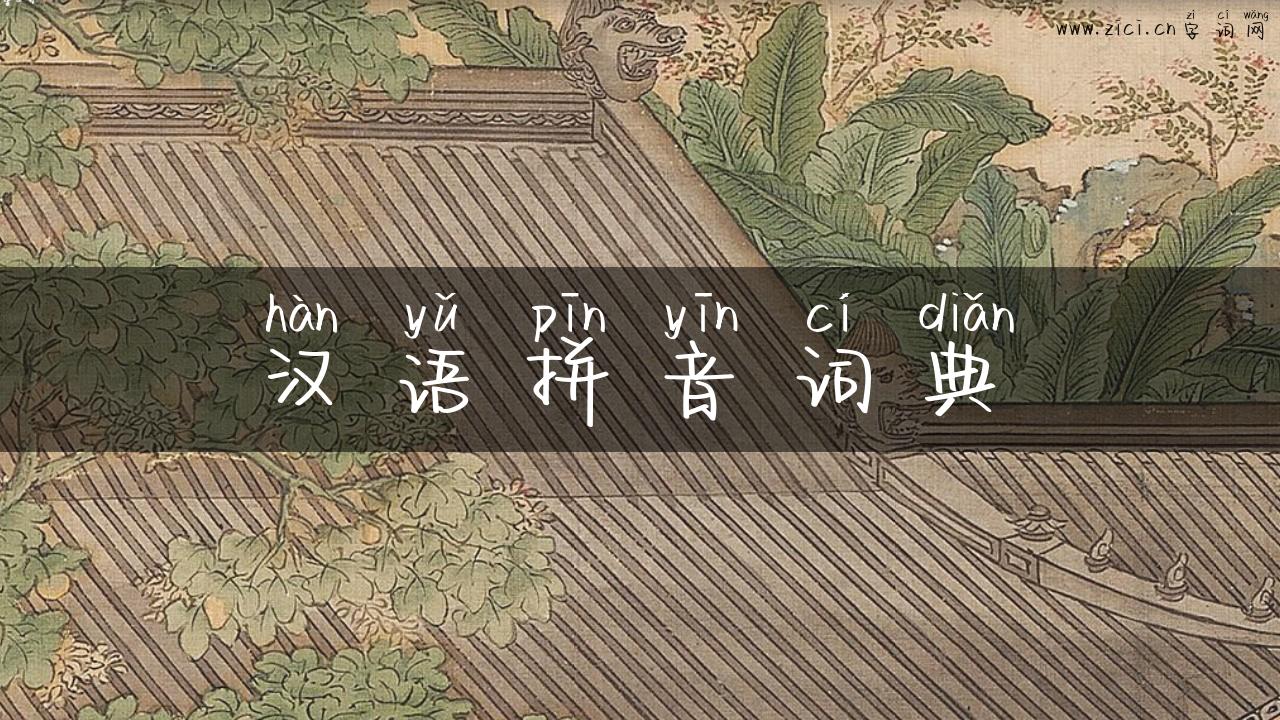 zì cí wǎng
www.zici.cn 字词网
hàn yǔ pīn yīn cí diǎn
汉语拼音词典